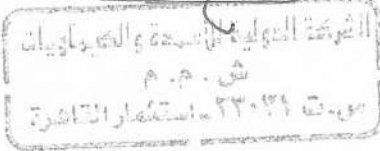 الشركة الدولية للأسمدة والكيماويات
ش . م . م
س.ت ٢٣٠٢١ استثمار القاهرة